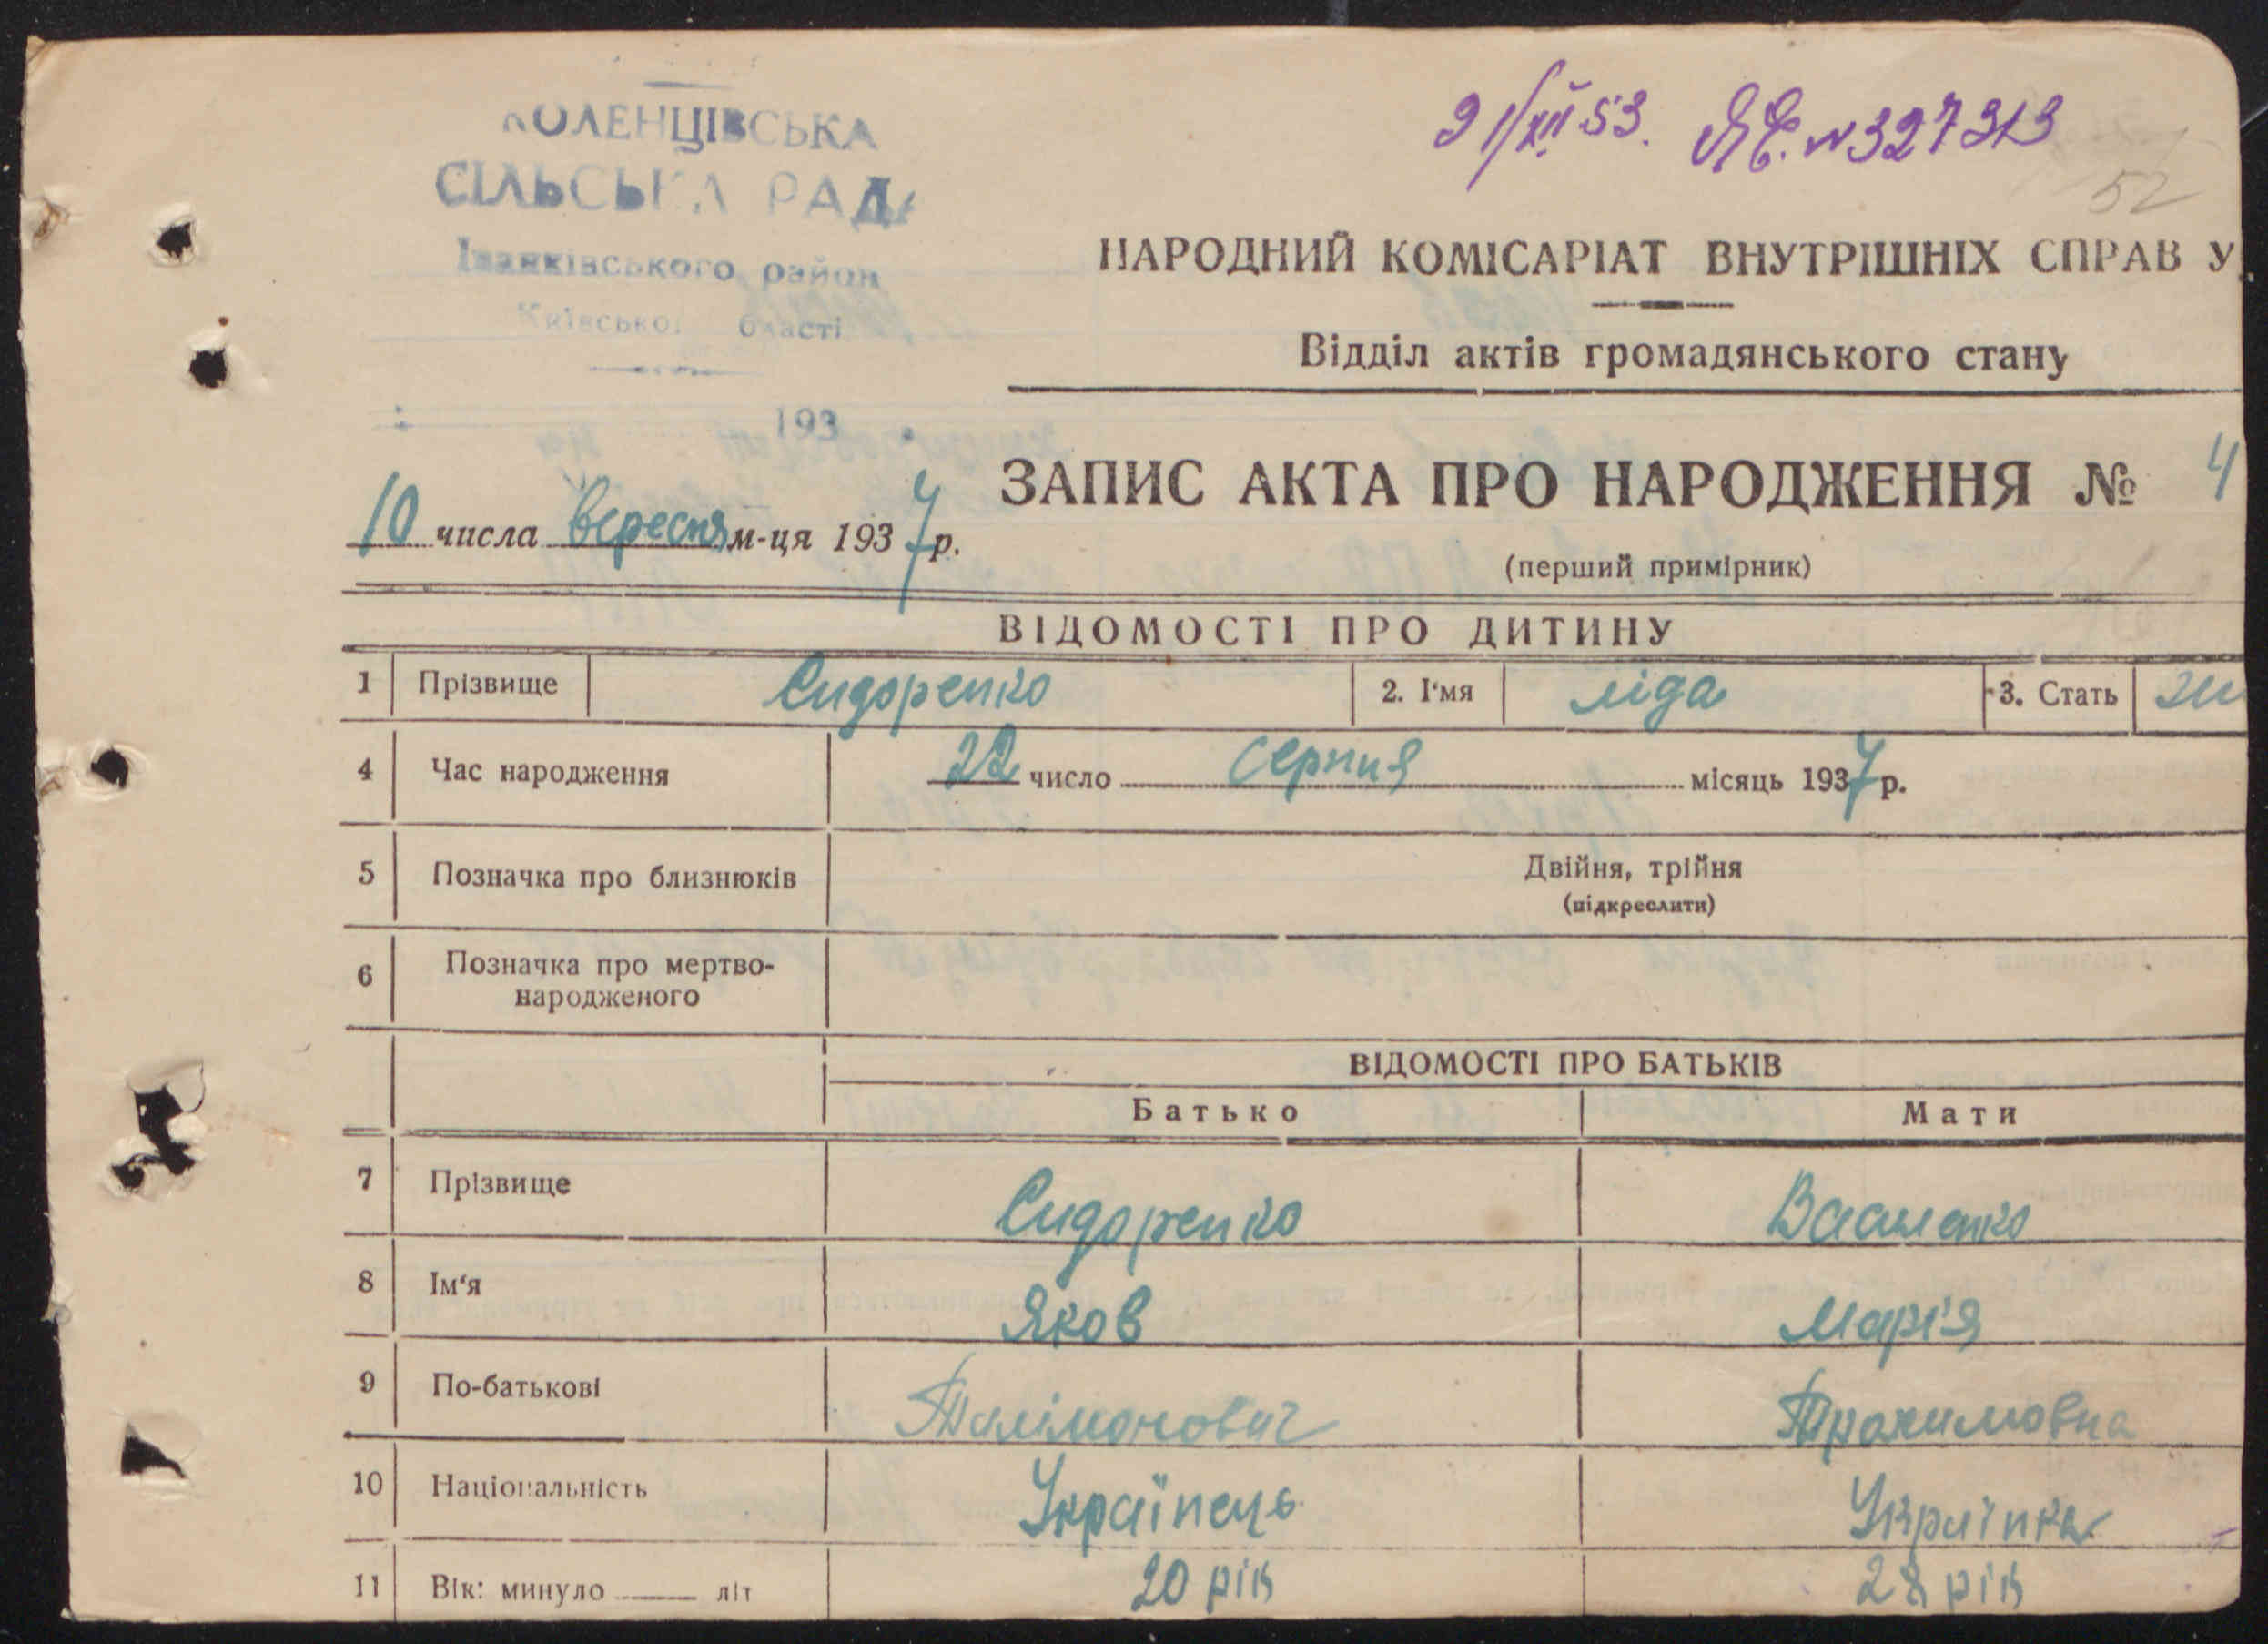 КОЛЕНЦІВСЬКА
СІЛЬСЬКА РАДА
Іванківського район
Київської області
193
21/XII 53. ЯЄ. № 327313
52
НАРОДНИЙ КОМІСАРІАТ ВНУТРІШНІХ СПРАВ У
Відділ актів громадянського стану
ЗАПИС АКТА ПРО НАРОДЖЕННЯ № 4
10 числа вересня м-ця 1937 р.
(перший примірник)
ВІДОМОСТІ ПРО ДИТИНУ
1 Прізвище Сидоренко 2. І'мя ліда 3. Стать
4 Час народження 22 число серпня місяць 1937 р.
5 Позначка про близнюків Двійня, трійня
(підкреслити)
6 Позначка про мертво-
народженого
ВІДОМОСТІ ПРО БАТЬКІВ
Батько Мати
7 Прізвище Сидоренко
8 Ім'я Яков Марія
9 По-батькові Талімонович Трохимовна
10 Національність Українець Українка
11 Вік: минуло літ 20 рік 28 рік